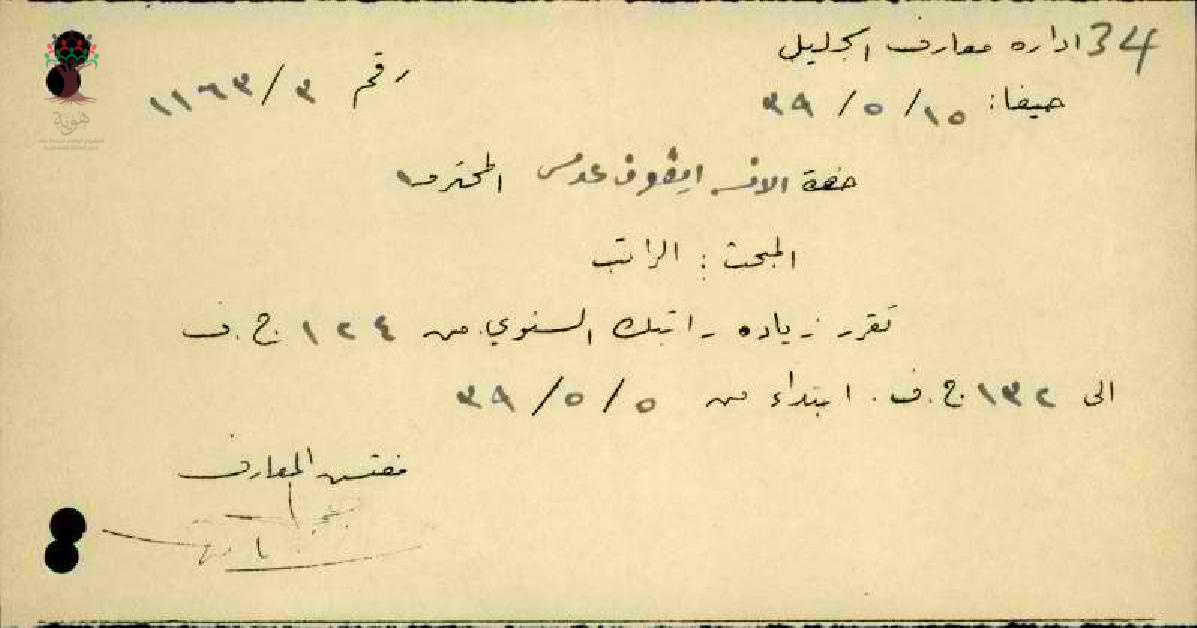 34
اداره معارف الجليل
حيفا: ١٥ / ٥ / ٣٩
رقم ٣ / ١١٦٣
حضرة الانسه ايفون عدس المحترمه
المبحث : الراتب
تقرر زياده راتبك السنوي من ١٢٤ ج.ف
الى ١٣٢ ج.ف. ابتداء من ٥ / ٥ / ٣٩
مفتش المعارف
هوية